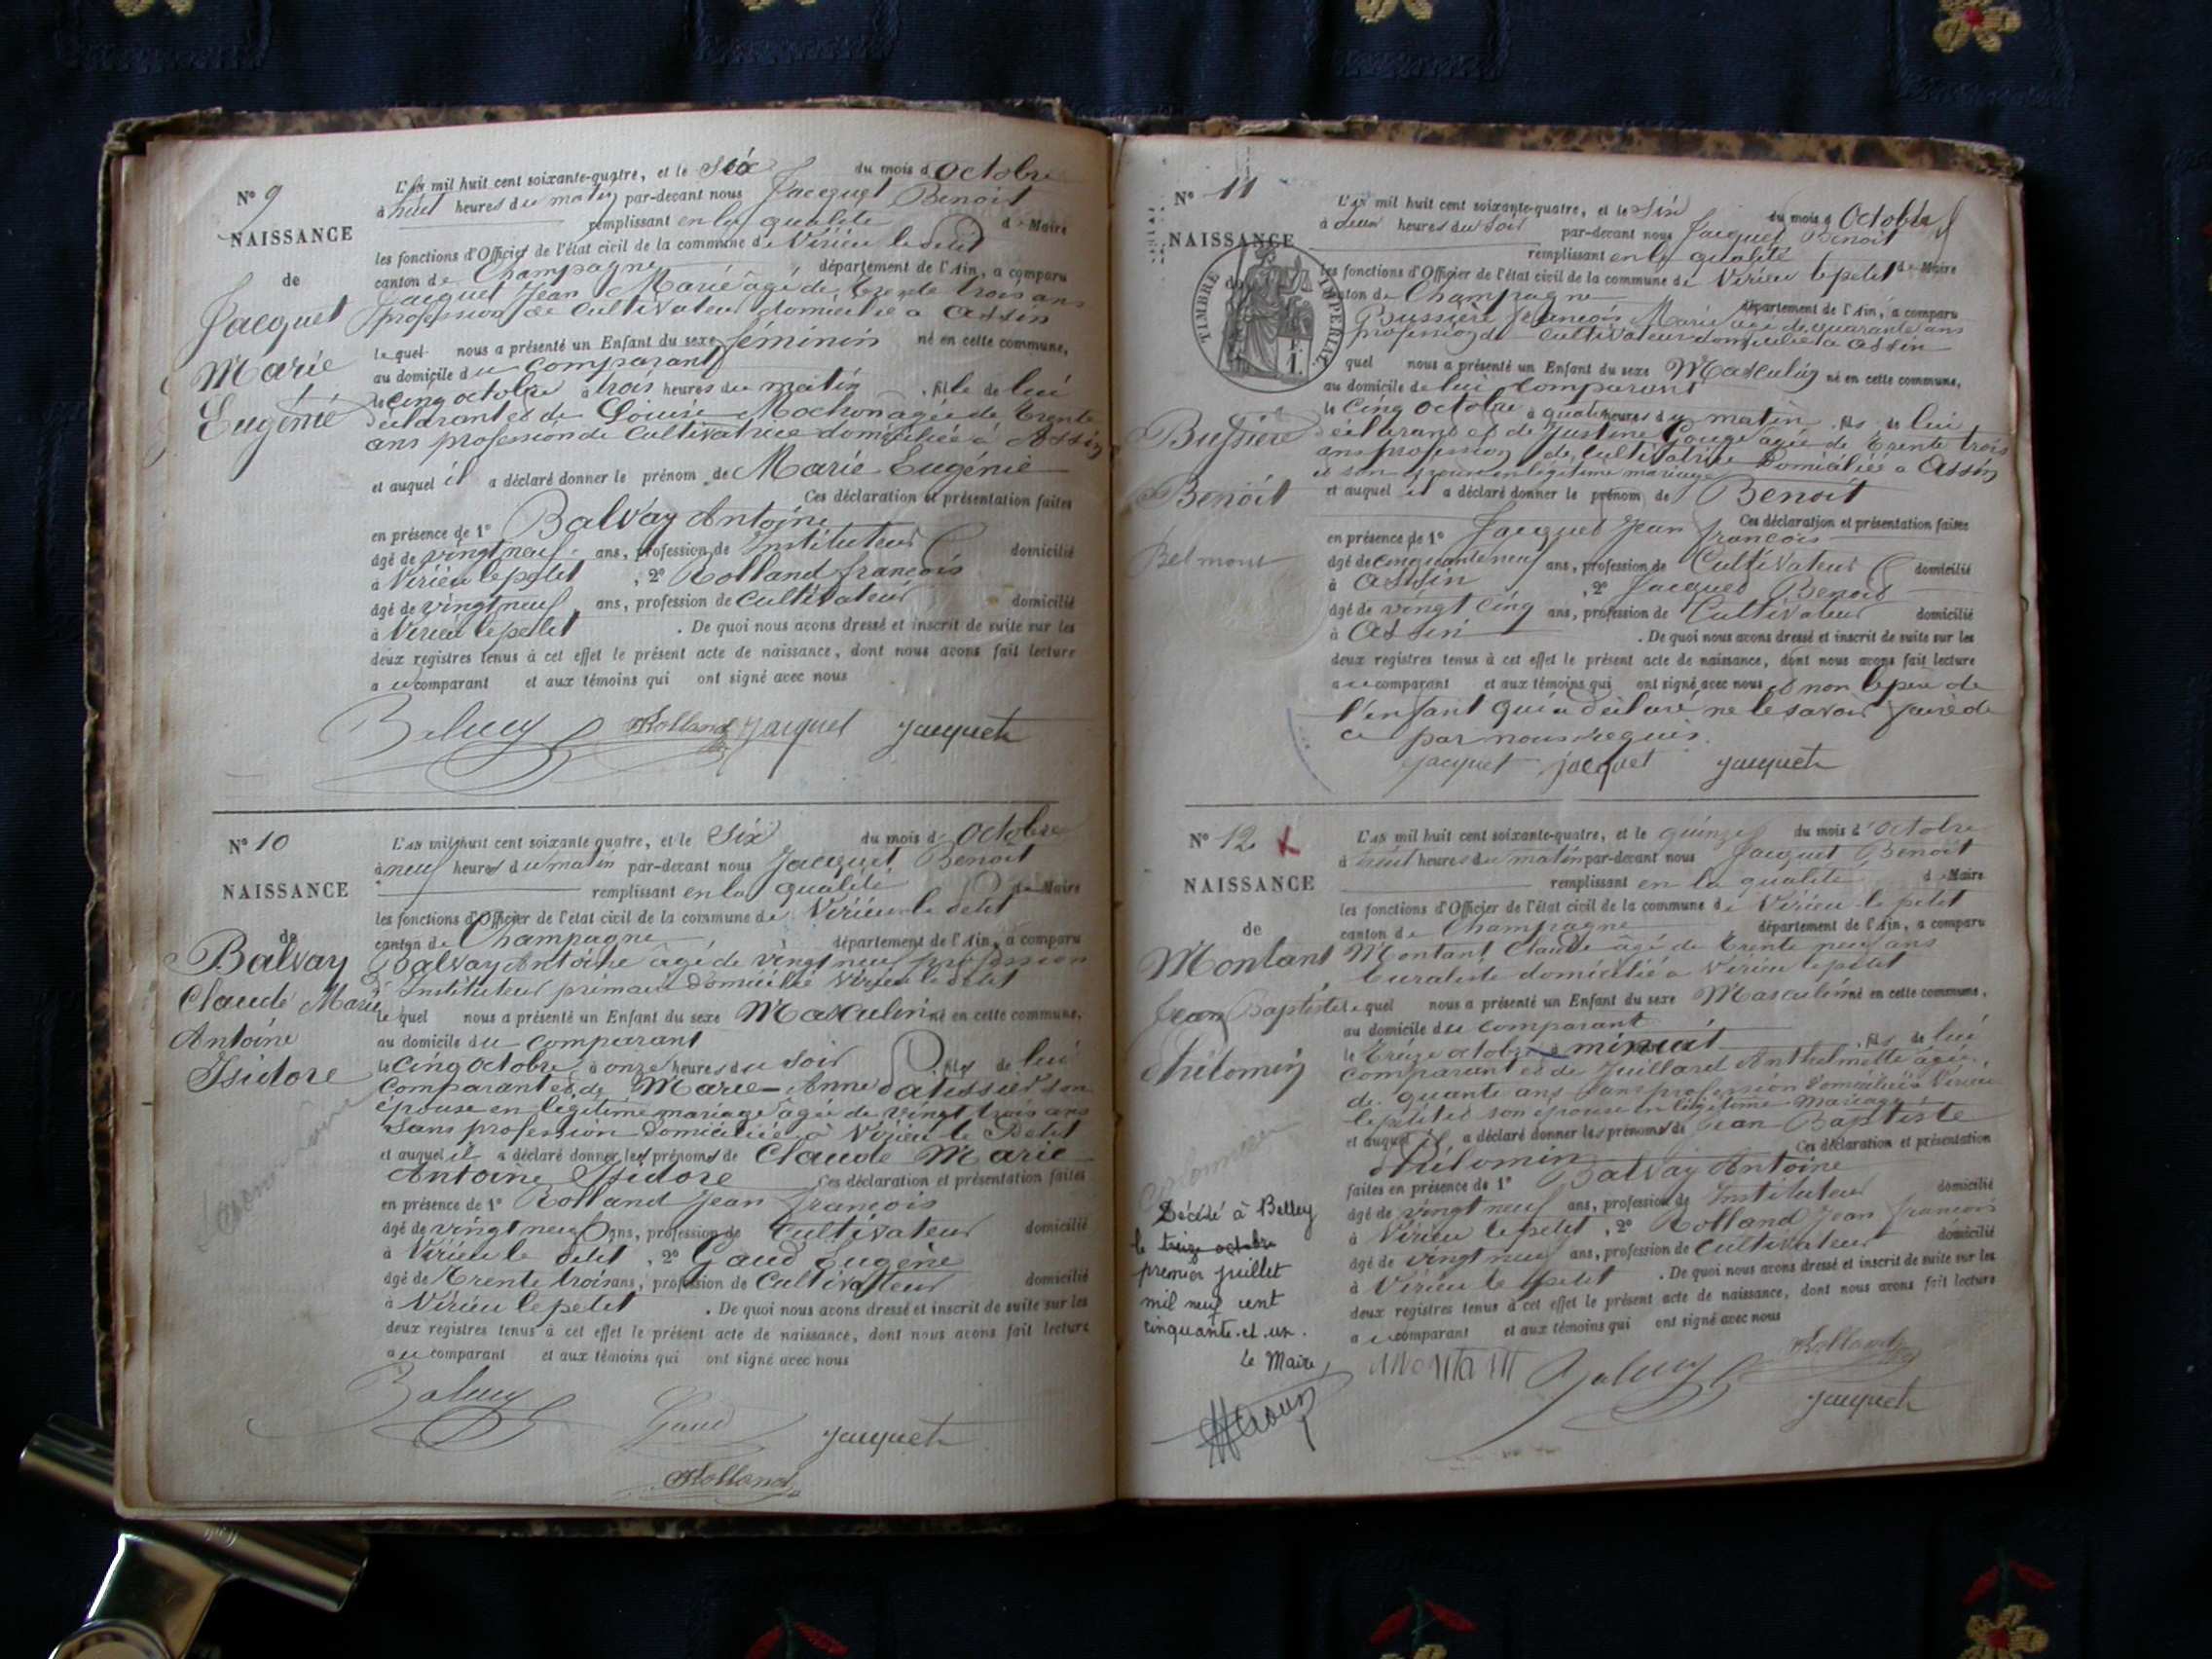 N° 9
NAISSANCE
de
Jacquet
Marie
Eugénie
L'AN mil huit cent soixante-quatre, et le Six du mois d'Octobre
à huit heures du matin par-devant nous Jacquet Benoit
remplissant en la qualité de Maire
les fonctions d'Officier de l'état civil de la commune de Virieu le Petit
canton de Champagne département de l'Ain, a comparu
Jacquet Jean Marie âgé de trente trois ans
profession de Cultivateur domicilié à Assin
lequel nous a présenté un Enfant du sexe féminin né en cette commune,
au domicile du comparant
le cinq octobre à trois heures du matin, fille de lui
déclarant et de Louise Mochon agée de trente
ans profession de Cultivatrice domiciliée à Assin
et auquel il a déclaré donner le prénom de Marie Eugénie
Ces déclaration et présentation faites
en présence de 1° Balvay Antoine
âgé de vingt neuf ans, profession de Instituteur domicilié
à Virieu le petit, 2° Rolland françois
âgé de vingt neuf ans, profession de Cultivateur domicilié
à Virieu le petit. De quoi nous avons dressé et inscrit de suite sur les
deux registres tenus à cet effet le présent acte de naissance, dont nous avons fait lecture
au comparant et aux témoins qui ont signé avec nous
Balvay Rolland Jacquet Jacquet
N° 10
NAISSANCE
de
Balvay
Claude Marie
Antoine
Isidore
L'AN mil huit cent soixante quatre, et le Six du mois d'Octobre
à neuf heures du matin par-devant nous Jacquet Benoit
remplissant en la qualité de Maire
les fonctions d'Officier de l'état civil de la commune de Virieu le Petit
canton de Champagne département de l'Ain, a comparu
Balvay Antoine âgé de vingt neuf profession
d'Instituteur primaire domicilié Virieu le Petit
lequel nous a présenté un Enfant du sexe Masculin né en cette commune,
au domicile du comparant
le Cinq Octobre, à onze heures du soir, fils de lui
Comparant et de Marie-Anne Patissier son
épouse en légitime mariage âgée de vingt trois ans
sans profession domiciliée à Virieu le Petit
et auquel il a déclaré donner les prénoms de Claude Marie
Antoine Isidore Ces déclaration et présentation faites
en présence de 1° Rolland Jean françois
âgé de vingt neuf ans, profession de Cultivateur domicilié
à Virieu le petit, 2° Gaud Eugène
âgé de trente trois ans, profession de Cultivateur domicilié
à Virieu le petit. De quoi nous avons dressé et inscrit de suite sur les
deux registres tenus à cet effet le présent acte de naissance, dont nous avons fait lecture
au comparant et aux témoins qui ont signé avec nous
Balvay Gaud Jacquet
Rolland
N° 11
NAISSANCE
de
TIMBRE IMPERIAL
Bussière
Benoit
Belmont
L'AN mil huit cent soixante-quatre, et le Six du mois d'Octobre
à deux heures du soir par-devant nous Jacquet Benoit
remplissant en la qualité de Maire
les fonctions d'Officier de l'état civil de la commune de Virieu le petit
canton de Champagne département de l'Ain, a comparu
Bussière françois Marie âgé de quarante ans
profession de Cultivateur domicilié à Assin
quel nous a présenté un Enfant du sexe Masculin né en cette commune,
au domicile de lui comparant
le Cinq Octobre à quatre heures du matin, fils de lui
déclarant et de Justine Gouge agée de trente trois
ans profession de Cultivatrice domiciliée à Assin
et son épouse en légitime mariage
et auquel il a déclaré donner le prénom de Benoit
Ces déclaration et présentation faites
en présence de 1° Jacquet Jean françois
âgé de cinquante neuf ans, profession de Cultivateur domicilié
à Assin, 2° Jacquet Benoit
âgé de vingt cinq ans, profession de Cultivateur domicilié
à Assin. De quoi nous avons dressé et inscrit de suite sur les
deux registres tenus à cet effet le présent acte de naissance, dont nous avons fait lecture
au comparant et aux témoins qui ont signé avec nous et non le père de
l'enfant qui a déclaré ne le savoir faire de
ce par nous requis.
Jacquet Jacquet Jacquet
N° 12
NAISSANCE
de
Montant
Jean Baptiste
Philomin
Décédé à Belley
le treize octobre
premier juillet
mil neuf cent
cinquante-et-un.
Le Maire,
L'AN mil huit cent soixante-quatre, et le quinze du mois d'Octobre
à huit heures du matin par-devant nous Jacquet Benoit
remplissant en la qualité de Maire
les fonctions d'Officier de l'état civil de la commune de Virieu le petit
canton de Champagne département de l'Ain, a comparu
Montant Claude agé de trente neuf ans
buraliste domicilié à Virieu le petit
lequel nous a présenté un Enfant du sexe Masculin né en cette commune,
au domicile du comparant
le treize octobre à minuit, fils de lui
comparant et de Juillard Anthelmette agée
de quante ans sans profession domiciliée à Virieu
le petit et son épouse en légitime mariage
et auquel il a déclaré donner les prénoms de Jean Baptiste
Philomin Ces déclaration et présentation
faites en présence de 1° Balvay Antoine
âgé de vingt neuf ans, profession de Instituteur domicilié
à Virieu le petit, 2° Rolland Jean françois
âgé de vingt neuf ans, profession de Cultivateur domicilié
à Virieu le petit. De quoi nous avons dressé et inscrit de suite sur les
deux registres tenus à cet effet le présent acte de naissance, dont nous avons fait lecture
au comparant et aux témoins qui ont signé avec nous
Montant Balvay Rolland
Jacquet